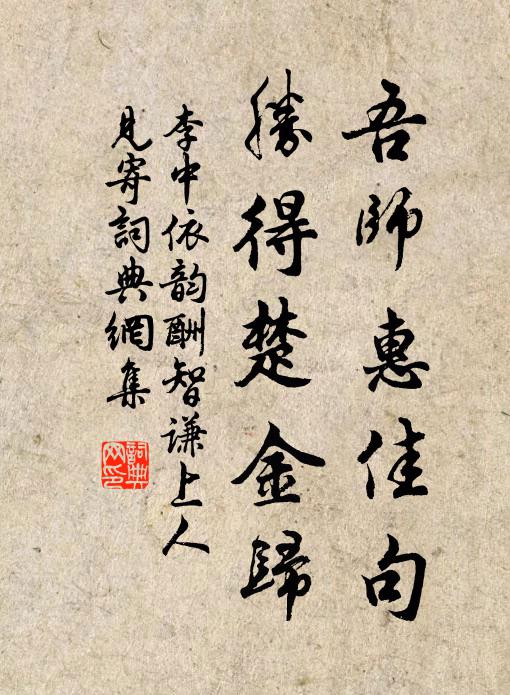 吾師惠佳句
勝得楚金歸
李中依韵酬智谦上人
見寄詞典網集
詞典网印